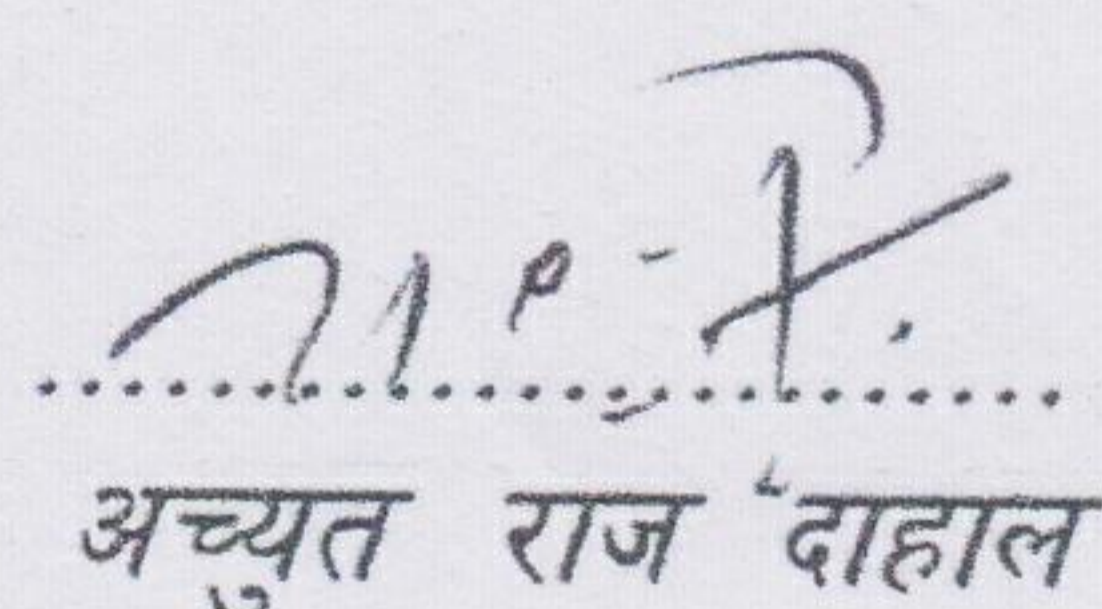 अच्युत राज दाहाल